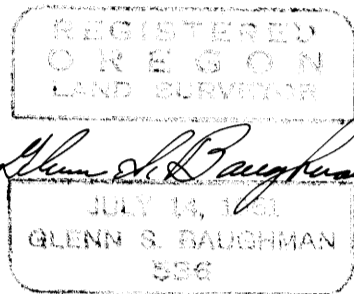 REGISTERED
OREGON
LAND SURVEYOR
Glenn S. Baughman
JULY 14,
GLENN S. BAUGHMAN